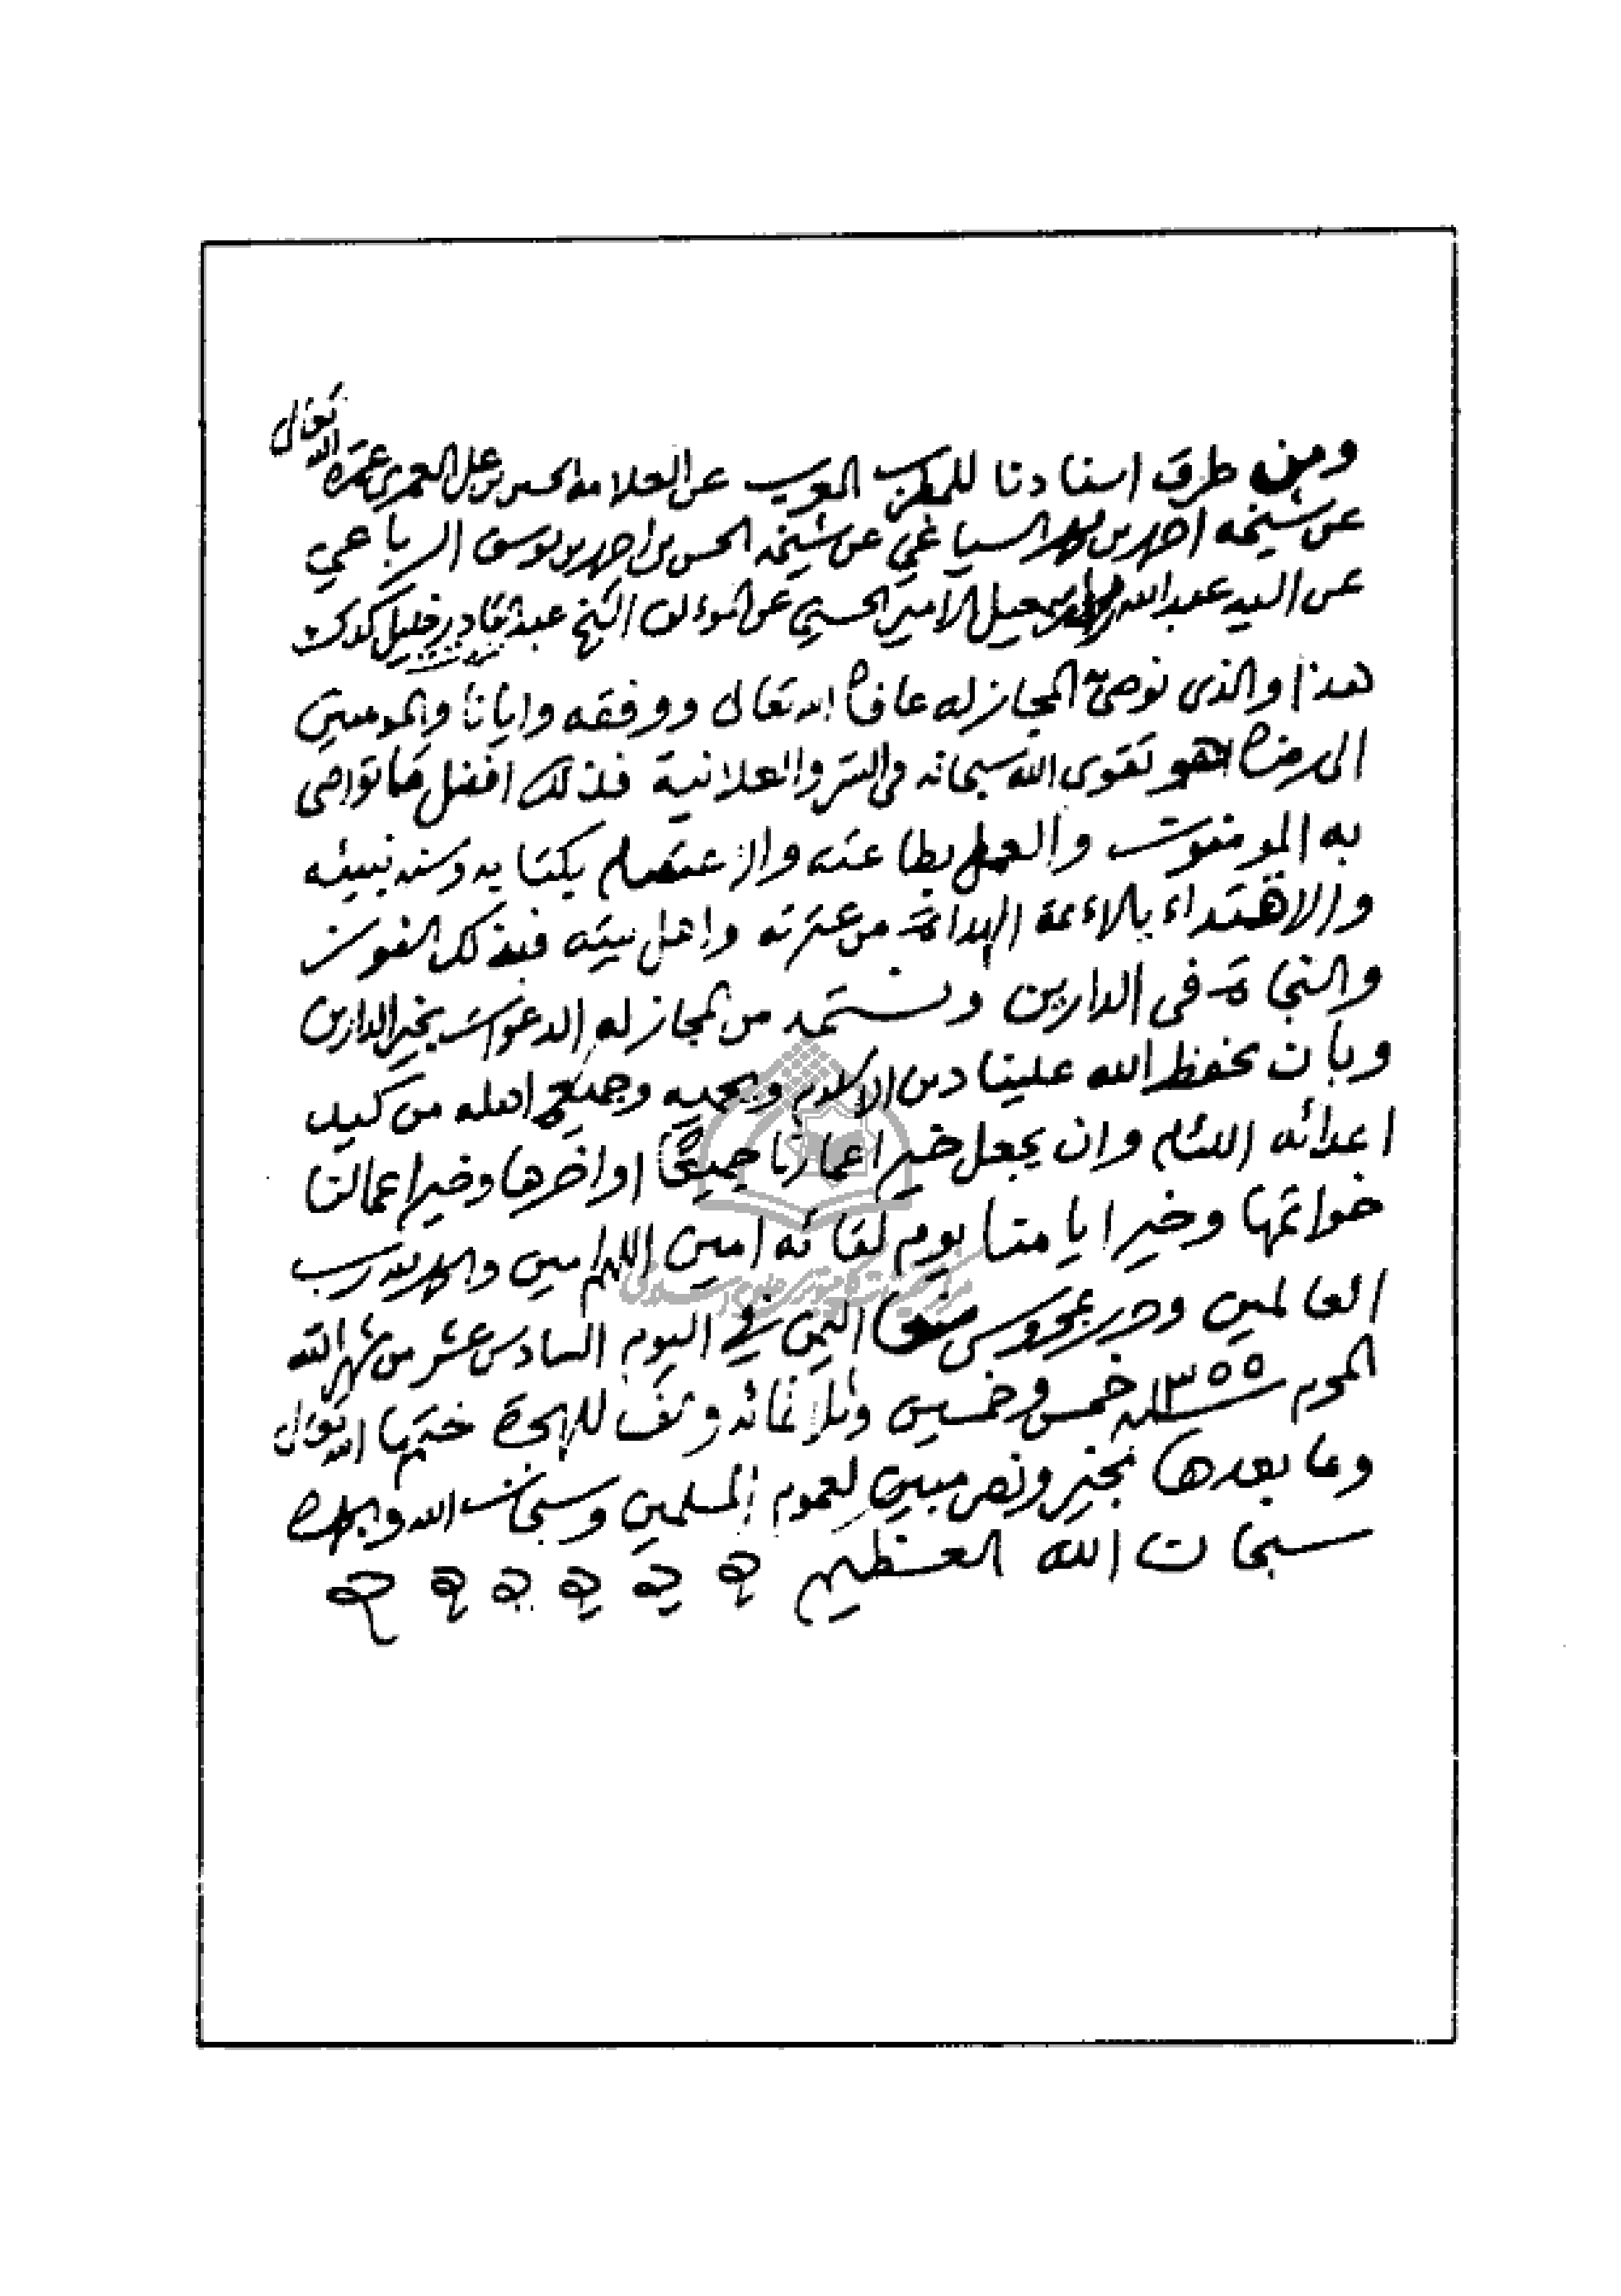 ومن طرق اسنادنا للمطرب المعرب عن العلامة الحسين بن علي العمري عمره الله تعالى
عن شيخه احمد بن محمد السياغي عن شيخه الحسن بن احمد بن يوسف الرباعي
عن السيد عبد الله بن محمد بن اسمعيل الامير الحسني عن المؤلف الشيخ عبد القادر بن خليل كدك
هذا والذي نوصي المجاز له عافاه الله تعالى ووفقه وايانا والمومنين
الى رضاه هو تقوى الله سبحانه في السر والعلانية فذلك افضل ما تواصى
به المومنون والعمل بطاعته والاعتصام بكتابه وسنه نبيئه
والاهتداء بالاءمة الهداة من عترته واهل بيته فبذلك الفوز
والنجاة في الدارين ونستمد من المجاز له الدعوات بخير الدارين
وبان يحفظ الله علينا دين الاسلام ويحميه وجميع اهله من كيد
اعدائه اللئام وان يجعل خير اعمارنا جميعًا اواخرها وخير اعمالنا
خواتمها وخير ايامنا يوم لقائه امين اللهم امين والحمد لله رب
العالمين وحرر بمحروس صنعا اليمن في اليوم السادس عشر من شهر الله
المحرم سنة ١٣٥٥ خمس وخمسين وثلاثمائه والف للهجرة ختمها الله تعالى
وما بعدها بخير ونصر مبين لعموم المسلمين وسبحان الله وبحمده
سبحان الله العظيم